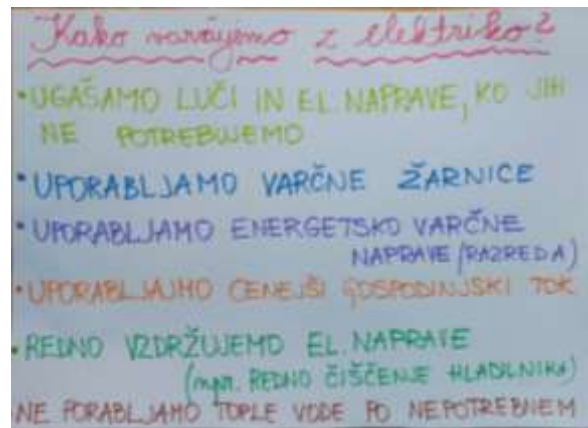 Kako varčujemo z elektriko?
• UGAŠAMO LUČI IN EL. NAPRAVE, KO JIH
NE POTREBUJEMO
• UPORABLJAMO VARČNE ŽARNICE
• UPORABLJAMO ENERGETSKO VARČNE
NAPRAVE (RAZRED A)
• UPORABLJAJMO CENEJŠI GOSPODINJSKI TOK
• REDNO VZDRŽUJEMO EL. NAPRAVE
(npr. REDNO ČIŠČENJE HLADILNIKA)
• NE PORABLJAMO TOPLE VODE PO NEPOTREBNEM